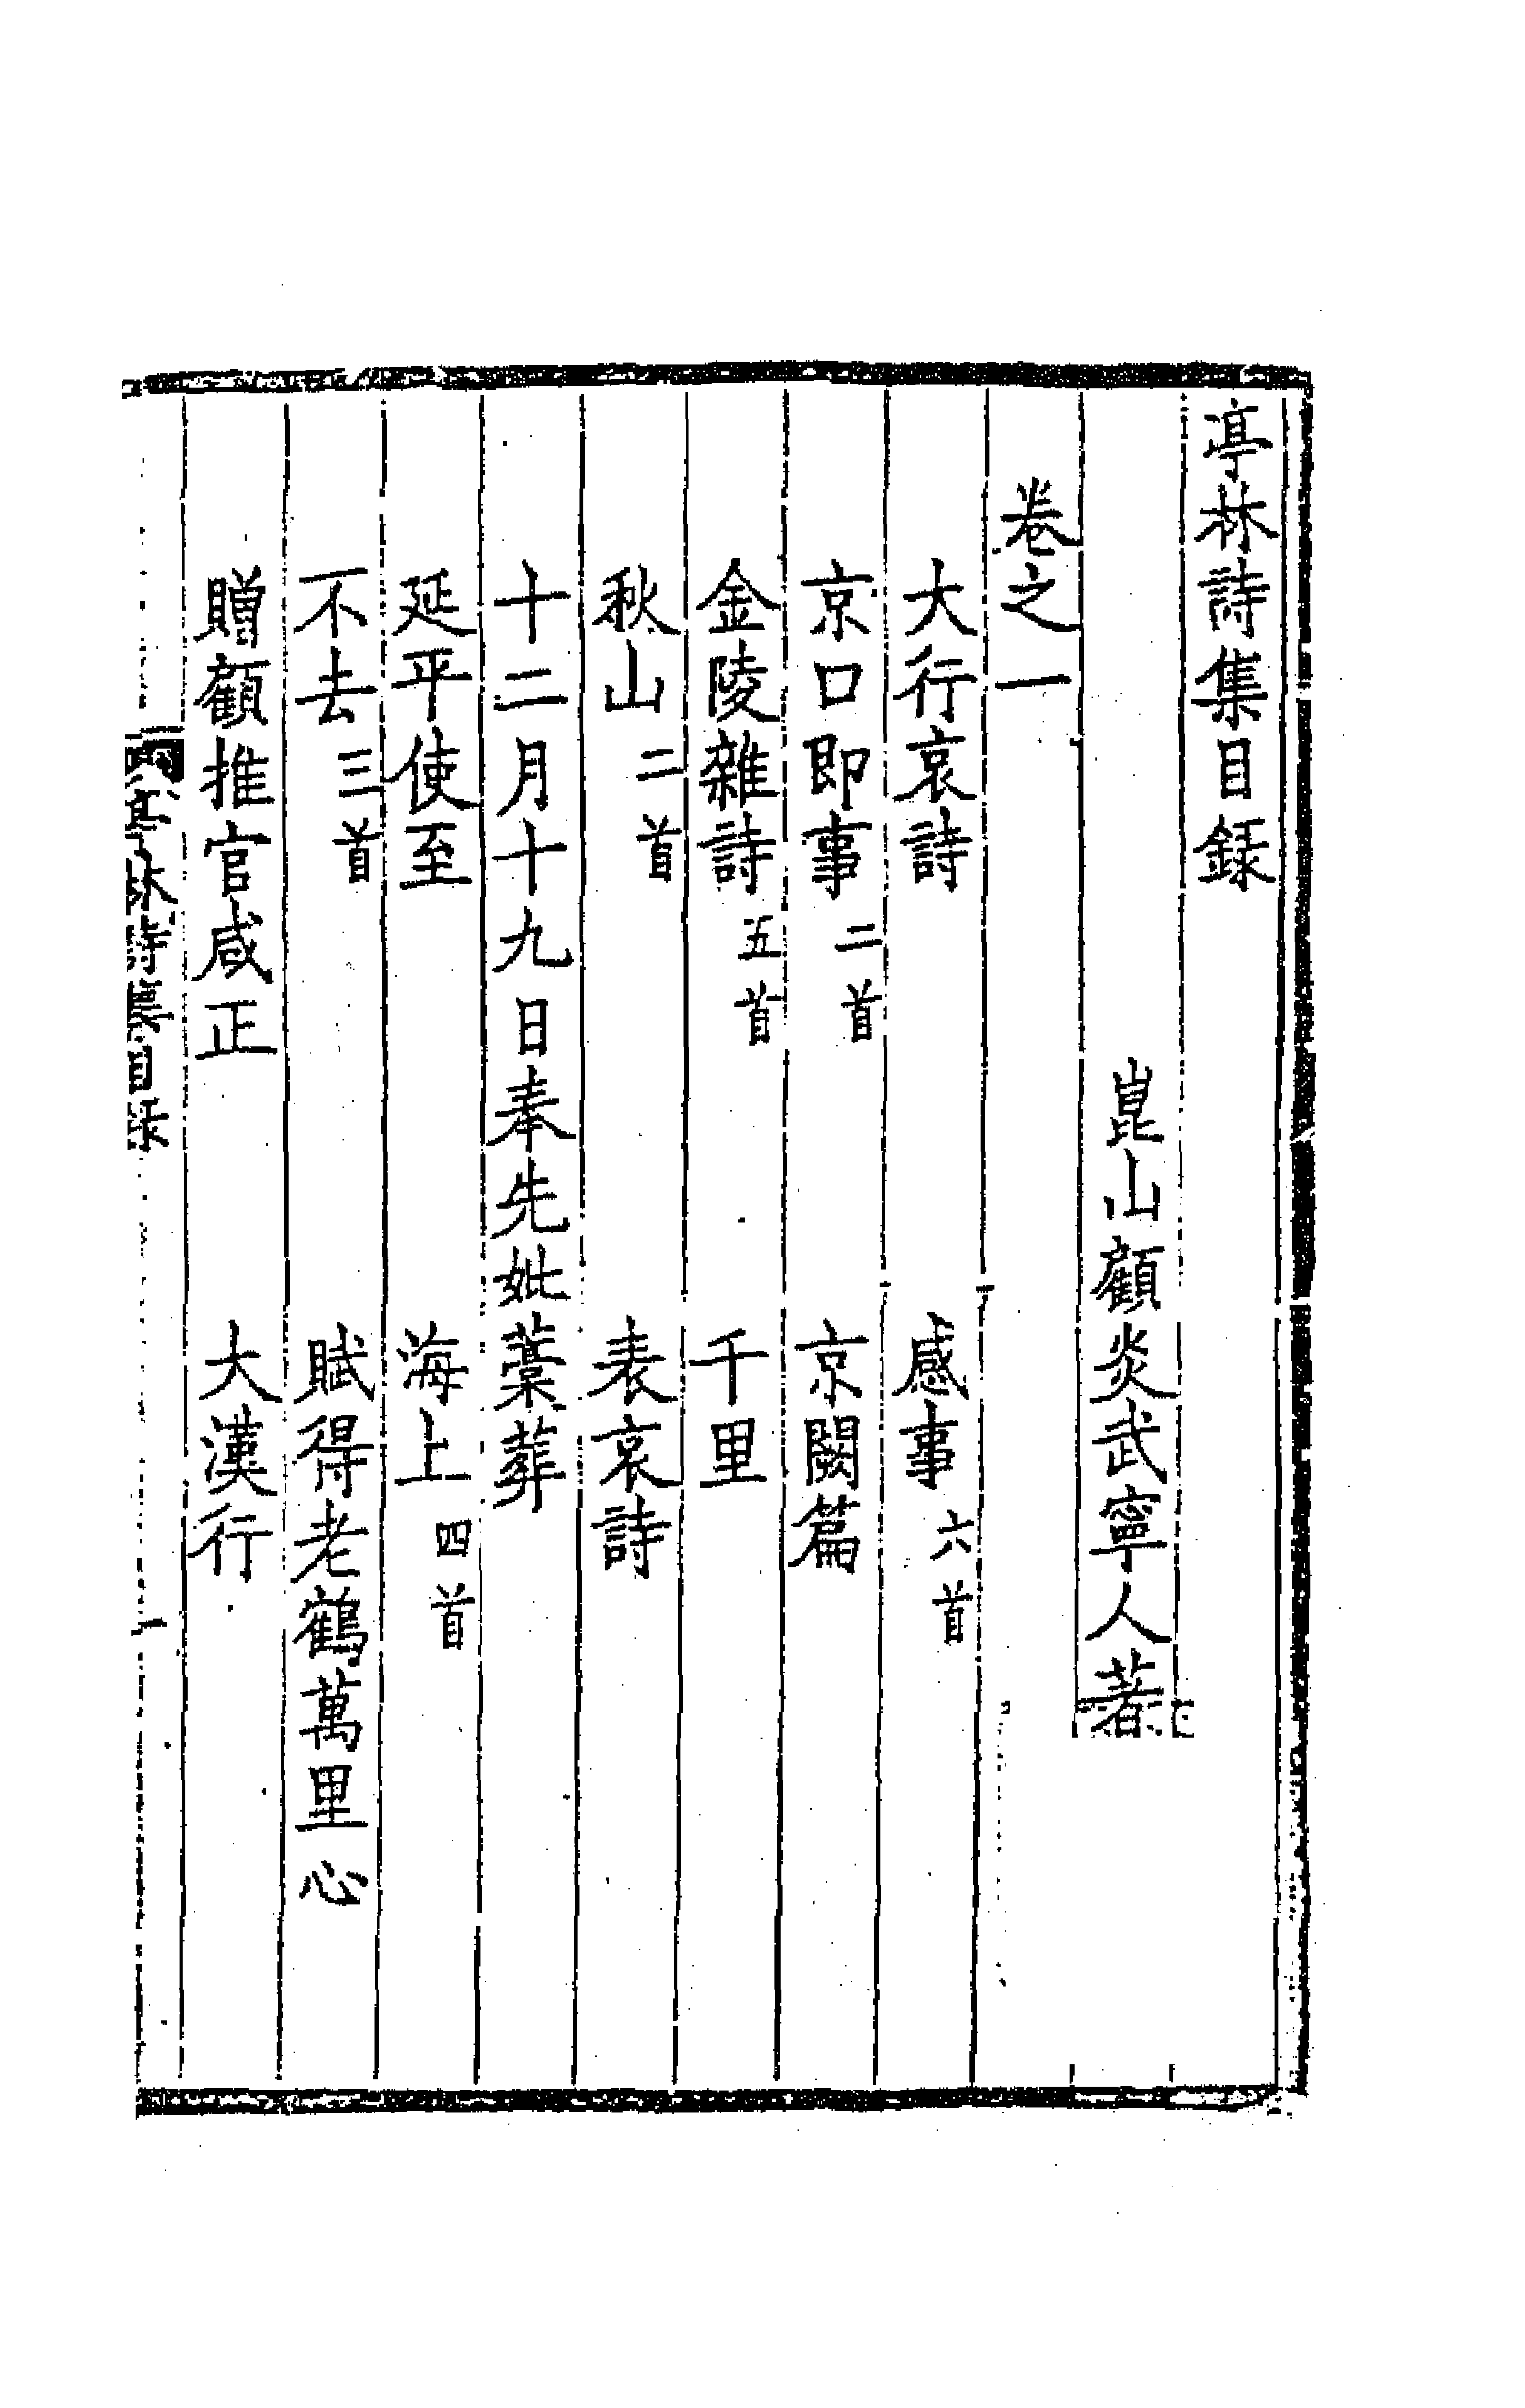 亭林詩集目録
崑山顧炎武寧人著
卷之一
大行哀詩　感事六首
京口即事二首　京闕篇
金陵雜詩五首　千里
秋山二首　表哀詩
十二月十九日奉先妣藁葬
延平使至　海上四首
不去三首　賦得老鶴萬里心
贈顧推官咸正　大漢行
亭林詩集目录
一